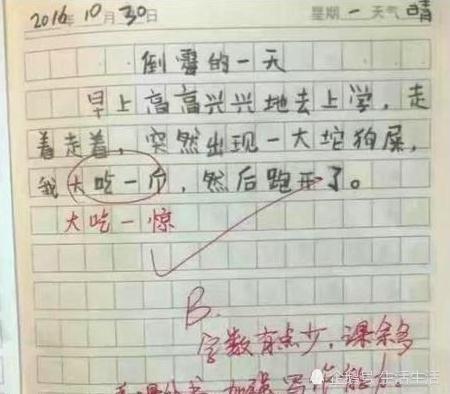 2016年10月30日 星期一 天气晴
倒霉的一天
早上高高兴兴地去上学，走
着走着，突然出现一大坨狗屎，
我大吃一斤，然后跑开了。
大吃一惊
B.
字数有点少，课余多
课外书，加强写作能力.
企鹅号 生活生活